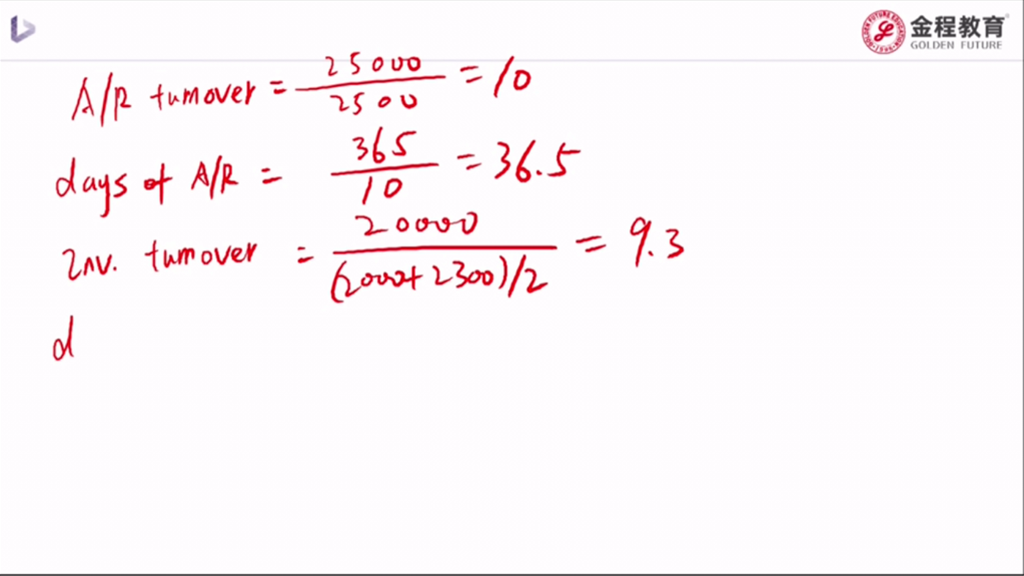 金程教育
GOLDEN FUTURE
A/R turnover = 25000 / 2500 = 10
days of A/R = 365 / 10 = 36.5
Inv. turnover = 20000 / (2000+2300)/2 = 9.3
d